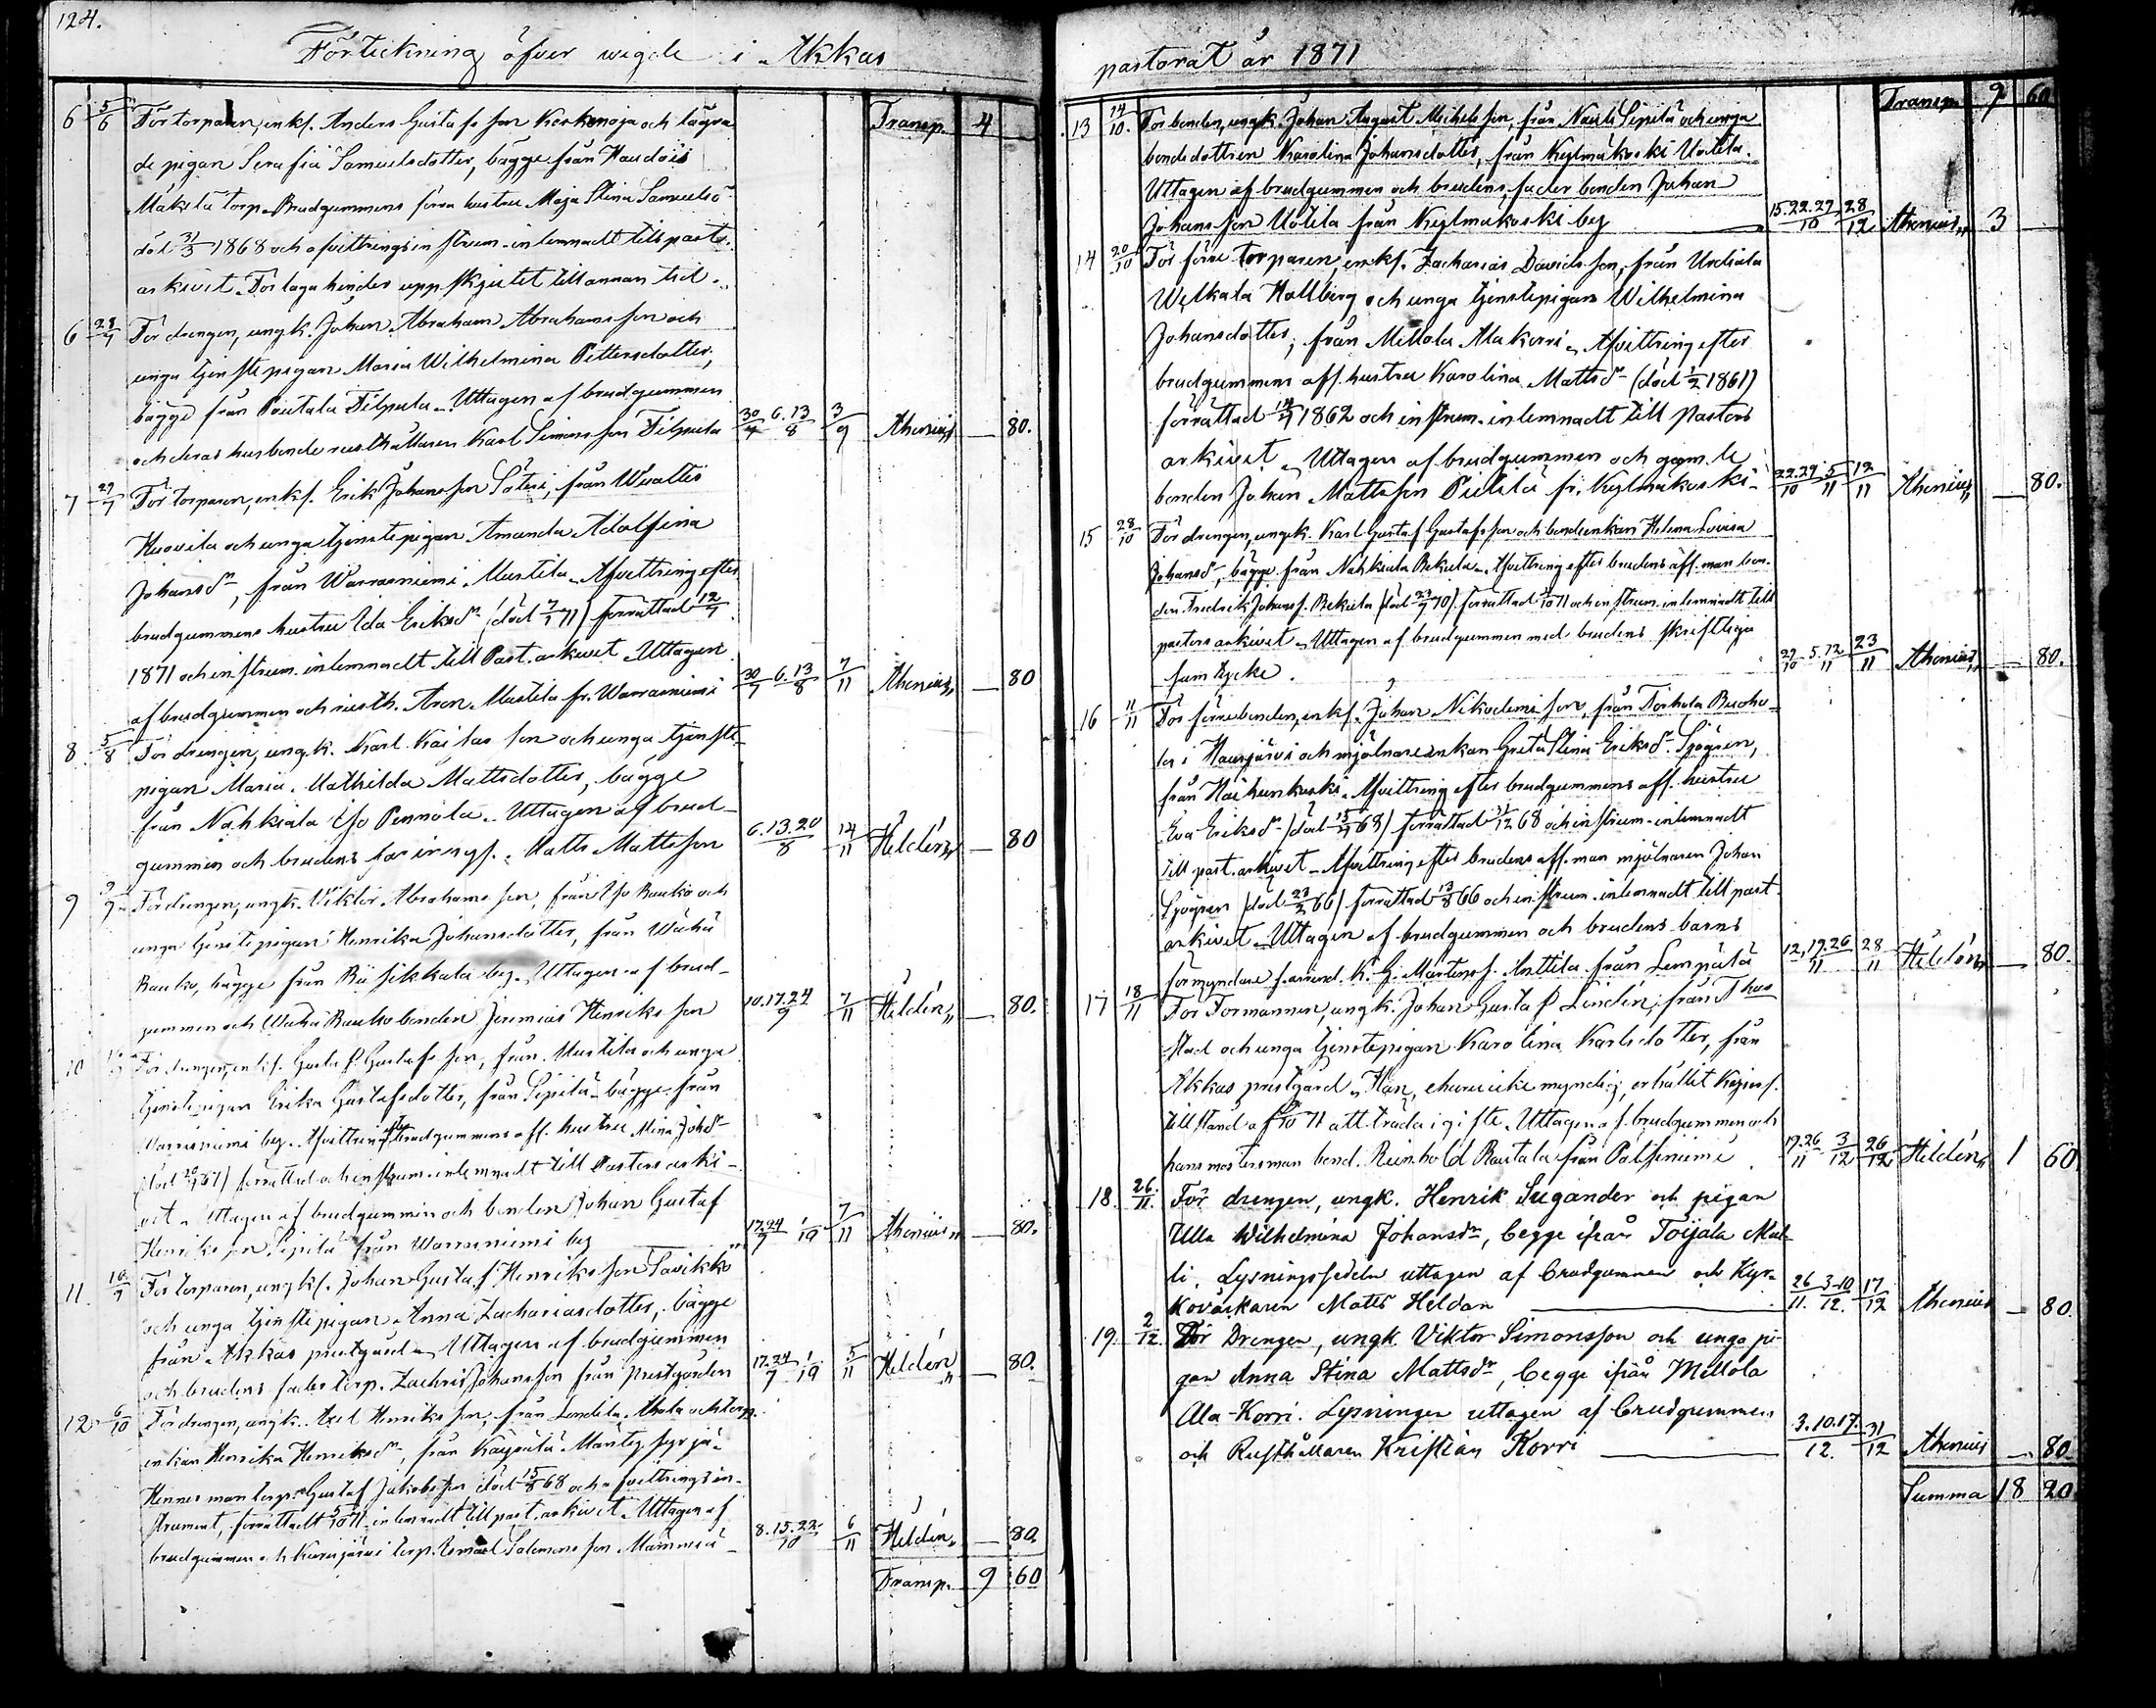 124.
Förteckning öfver wigde i Akkas
Transp. 4
6 5/6 För torparen, enkl. Anders Gustafsson Korkenoja och lägra
de pigan Serafia Samuelsdotter, bägge från Haudois
Mäkelä torp. Brudgummens förra hustru Maja Stina Samuelsd
död 31/3 1868 och afvittringsinstrum. inlemnadt till past.
arkivet. För laga hinder uppskjutet till annan tid.
6 28/7 För drengen, ungk. Johan Abraham Abrahamsson och
unga tjenstepigan Maria Wilhelmina Pettersdotter,
bägge från Pautala Filpula. Uttagen af brudgummen
och deras husbonde rusthållaren Karl Simonsson Filpula 30/7 6.13/8 3/9 Athenius — 80.
7 29/7 För torparen, enkl. Erik Johansson Säteri, från
Huovila och unga tjenstepigan Amanda Adolfina
Johansdr, från Warrasniemi Mustila. Afvittring efter
brudgummens hustru Ida Eriksdr (död 7/1 71) förrättad 12/7
1871 och instrum. inlemnadt till Past. arkivet. Uttagen
af brudgummen och rusth. Aron Mustila fr. Warrasniemi 30/7 6.13/8 7/11 Athenius — 80
8 5/8 För drengen, ungk. Karl Kaisasson och unga tjenste-
pigan Maria Mathilda Mattsdotter, bägge
från Nahkiala Iso Pennola. Uttagen af brud-
gummen och brudens far inhys. Matts Mattsson 6.13.20/8 14/11 Heldén — 80
9 9/9 För drengen, ungk. Viktor Abrahamsson, från Iso Rauko och
unga tjenstepigan Henrika Johansdotter, från Wähä
Rauko, bägge från Riisikkala by. Uttagen af brud-
gummen och Wähä Rauko bonden Jeremias Henriksson 10.17.24/9 7/11 Heldén — 80.
10 För drengen, enkl. Gustaf Gustafsson, från Mustila och unga
tjenstepigan Erika Gustafsdotter, från Sipilä, bägge från
Warrasniemi by. Afvittring efter brudgummens afl. hustru Mina Johdr
förrättad och instrum. inlemnadt till Pastors arki-
vet. Uttagen af brudgummen och bonden Johan Gustaf
Henriksson Sipilä från Warrasniemi by 17.24/9 1/10 7/11 Athenius — 80.
11. 16/9 För torparen, ungkl. Johan Gustaf Henriksson Savikko
och unga tjenstepigan Anna Zachariasdotter, bägge
från Akkas prestgård. Uttagen af brudgummen
och brudens fader torp. Zachris Johansson från Prestgården 17.24/9 1/10 5/11 Heldén — 80.
12 6/10 För drengen, ungk. Axel Henriksson, från och torp.
enkan Henrika Henriksdr, från
Hennes man torp. Gustaf Jakobsson död 15/8 68 och afvittringsin-
strument, förrättadt 5/10 71 inlemnadt till past. arkivet. Uttagen af
brudgummen och Kurisjärvi torp. Salomonsson 8.15.22/10 6/11 Heldén — 80.
Transp. 9 60
pastorat år 1871
Transp. 9 60
13 14/10. För bonden, ungk. Johan August Michelsson, från Sipilä och unga
bondedottren Karolina Johansdotter, från Kylmäkoski Uotila.
Uttagen af brudgummen och brudens fader bonden Johan
Johansson Uotila från Kylmäkoski by 15.22.29/10 28/12 Athenius 3 —
14 20/10 För förre torparen, enkl. Zacharias Davidsson, från Urdiala
Welkala Hallberg och unga tjenstepigan Wilhelmina
Johansdotter, från Mellola Alakorri. Afvittring efter
brudgummens afl. hustru Karolina Mattsdr (död 1/2 1861)
förrättad 14/7 1862 och instrum. inlemnadt till Pastors
arkivet. Uttagen af brudgummen och gamle
bonden Johan Mattsson Pietilä fr. Kylmäkoski 22.29/10 5/11 12/11 Athenius — 80.
15 28/10 För drengen, ungk. Karl Gustaf Gustafsson och bondeenkan Helena Lovisa
Johansdr, bägge från Nahkiala Pekola. Afvittring efter brudens afl. man bon-
den Fredrik Johanss. Pekola (död 29/9 70) förrättad 71 och instrum. inlemnadt till
pastors arkivet. Uttagen af brudgummen med brudens skriftliga
samtycke. 29/10 5.12/11 23/11 Athenius — 80.
16 11/11 För förre bonden, enkl. Johan Nikodemisson, från Torhola Ruoho-
la i Hausjärvi och mjölnareenkan Greta Stina Eriksdr Sjögren,
från Haihunkoski. Afvittring efter brudgummens afl. hustru
Eva Eriksdr (död 15/4 68) förrättad 31/12 68 och instrum. inlemnadt
till past. arkivet. Afvittring efter brudens afl. man mjölnaren Johan
Sjögren (död 23/2 66) förrättad 13/8 66 och instrum. inlemnadt till past.
arkivet. Uttagen af brudgummen och brudens barns
förmyndare f. arrend. K. G. Mårtenss. Anttila från Lempälä 12.19.26/11 28/11 Heldén — 80.
17 18/11 För Formannen, ungk. Johan Gustaf Lindén, från Åbo
stad och unga tjenstepigan Karolina Karlsdotter, från
Akkas prestgård. Han, ehuru icke myndig, erhållit Kejserl.
tillstånd af 71 att träda i gifte. Uttagen af brudgummen och
hans mostersman bond. Reinhold Rautala från Potsiniemi 19.26/11 3/12 26/12 Heldén 1 60
18. 26./11. För drengen, ungk. Henrik Sugander och pigan
Ulla Wilhelmina Johansdr, begge ifrån Toijala Mat-
ti. Lysningssedeln uttagen af brudgummen och Kyr-
koväktaren Matts Heldan 26/11. 3-10/12. 17/12 Athenius — 80.
19. 2/12 För Drengen, ungk. Viktor Simonsson och unga pi-
gan Anna Stina Mattsdr, begge ifrån Mellola
Ala-Korri. Lysningen uttagen af brudgummen
och Rusthållaren Kristian Korri 3.10.17./12. 31/12 Athenius — 80.
Summa 18 20.